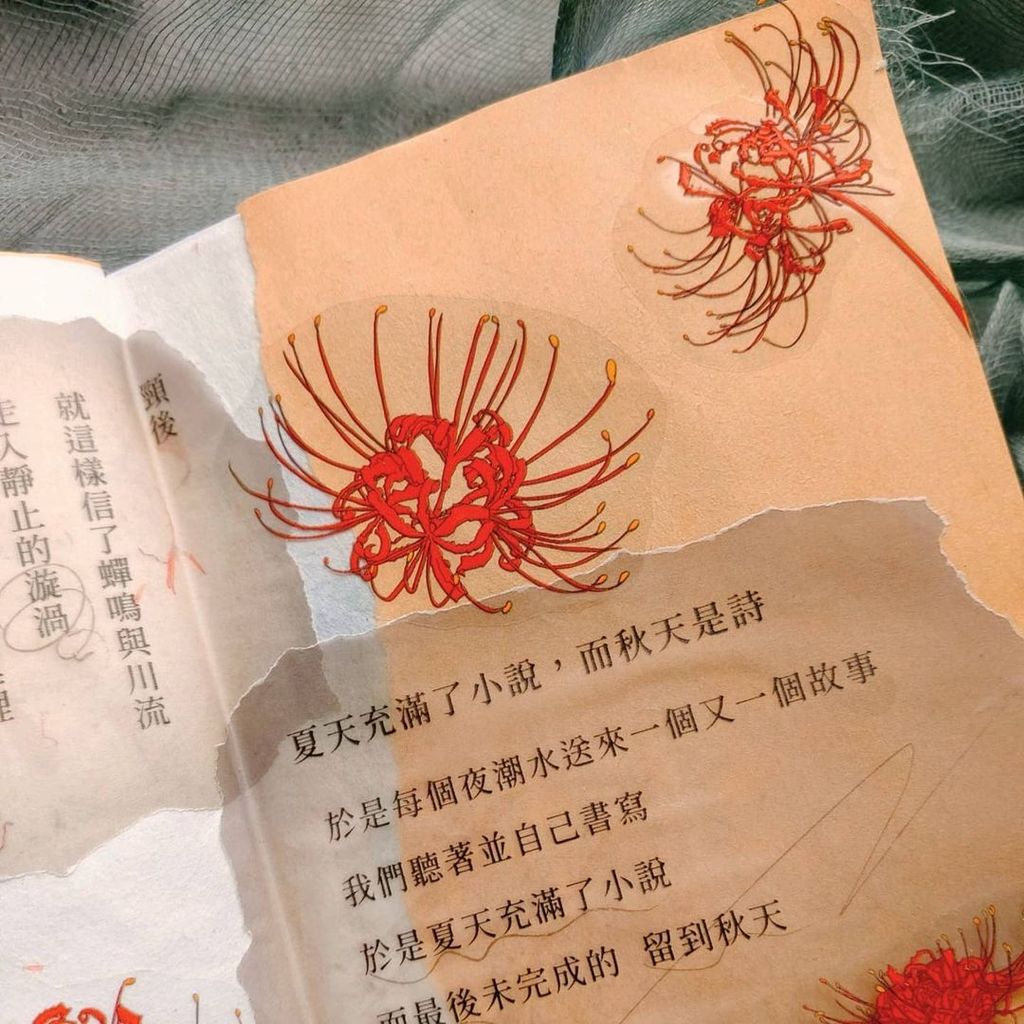 頸後
就這樣信了蟬鳴與川流
走入靜止的漩渦
夏天充滿了小說，而秋天是詩
於是每個夜潮水送來一個又一個故事
我們聽著並自己書寫
於是夏天充滿了小說
而最後未完成的 留到秋天